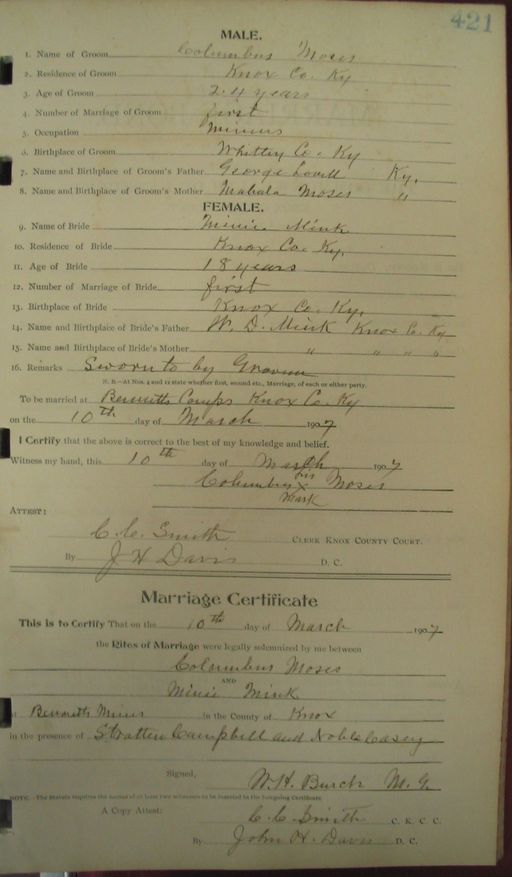 421
MALE.
1. Name of Groom Columbus Moses
2. Residence of Groom Knox Co. Ky
3. Age of Groom 24 years
4. Number of Marriage of Groom first
5. Occupation
6. Birthplace of Groom Whitley Co. Ky
7. Name and Birthplace of Groom's Father George Lovell Ky.
8. Name and Birthplace of Groom's Mother Mahala Moses "
FEMALE.
9. Name of Bride Minie Mink
10. Residence of Bride Knox Co. Ky.
11. Age of Bride 18 years
12. Number of Marriage of Bride first
13. Birthplace of Bride Knox Co. Ky.
14. Name and Birthplace of Bride's Father W. D. Mink Knox Co. Ky
15. Name and Birthplace of Bride's Mother " " " "
16. Remarks Sworn to by Groom
N. B.—At Nos. 4 and 12 state whether first, second etc., Marriage, of each or either party.
To be married at Bennetts Camps Knox Co. Ky
on the 10th day of March 1907
I Certify that the above is correct to the best of my knowledge and belief.
Witness my hand, this 10th day of March 1907
Columbus his x mark Moses
ATTEST:
C. C. Smith CLERK KNOX COUNTY COURT.
By J H Davis D. C.
Marriage Certificate
This is to Certify That on the 10th day of March 1907
the Rites of Marriage were legally solemnized by me between
Columbus Moses
AND
Minie Mink
at Bennetts Mines in the County of Knox
in the presence of Stratten Campbill and Noble Casey
Signed, W. H. Burch M. G.
NOTE.—The Statute requires the names of at least two witnesses to be inserted in the foregoing Certificate
A Copy Attest: C. C. Smith C. K. C. C.
By John H. Davis D. C.